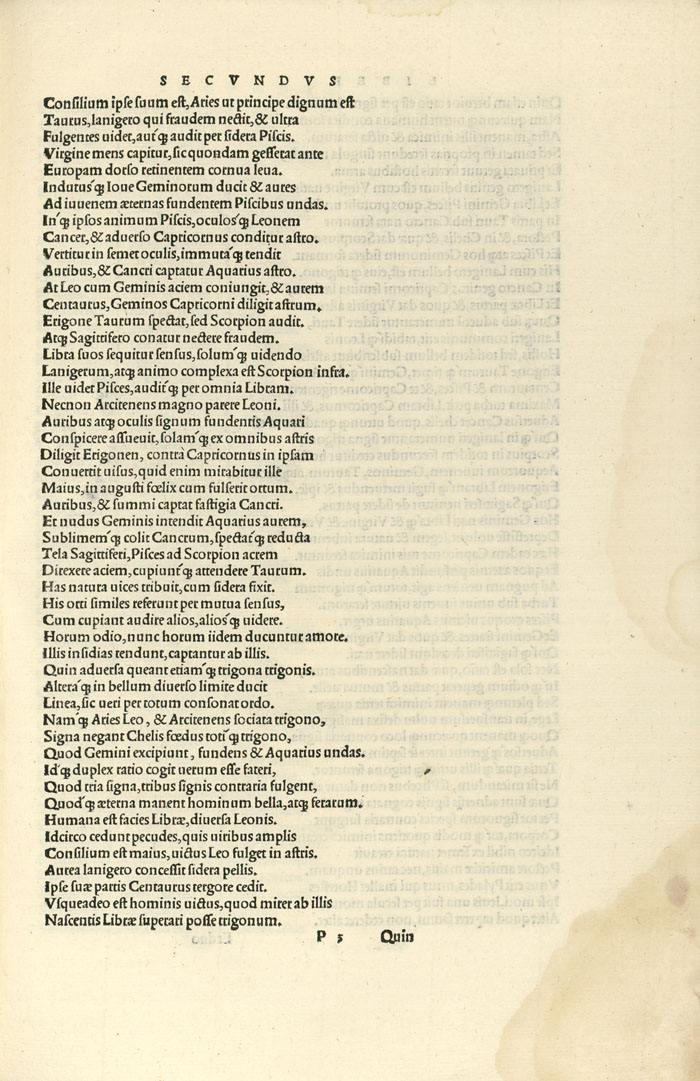 SECVNDVS
Conſilium ipſe ſuum eſt, Aries ut principe dignum eſt
Taurus, lanigero qui fraudem nectit, & ultra
Fulgentes uidet, autꝗ́ audit per ſidera Piſcis.
Virgine mens capitur, ſic quondam geſſerat ante
Europam dorſo retinentem cornua leua.
Indutusꝗ́ Ioue Geminorum ducit & aures
Ad iuuenem æternas fundentem Piſcibus undas.
Inꝗ́ ipſos animum Piſcis, oculosꝗ́ Leonem
Cancer, & aduerſo Capricornus conditur aſtro.
Vertitur in ſemet oculis, immutaꝗ́ tendit
Auribus, & Cancri captatur Aquarius aſtro.
At Leo cum Geminis aciem coniungit, & aurem
Centaurus, Geminos Capricorni diligit aſtrum.
Erigone Taurum ſpectat, ſed Scorpion audit.
Atꝗ Sagittifero conatur nectere fraudem.
Libra ſuos ſequitur ſenſus, ſolumꝗ́ uidendo
Lanigerum, atꝗ animo complexa eſt Scorpion infra.
Ille uidet Piſces, auditꝗ́ per omnia Libram.
Necnon Arcitenens magno parere Leoni.
Auribus atꝗ oculis ſignum fundentis Aquari
Conſpicere aſſueuit, ſolamꝗ́ ex omnibus aſtris
Diligit Erigonen, contrà Capricornus in ipſam
Conuertit uiſus, quid enim mirabitur ille
Maius, in auguſti fœlix cum fulſerit ortum.
Auribus, & ſummi captat faſtigia Cancri.
Et nudus Geminis intendit Aquarius aurem,
Sublimemꝗ́ colit Cancrum, ſpectatꝗ́ reducta
Tela Sagittiferi, Piſces ad Scorpion acrem
Direxere aciem, cupiuntꝗ́ attendere Taurum.
Has natura uices tribuit, cum ſidera fixit.
His orti ſimiles referunt per mutua ſenſus,
Cum cupiant audire alios, aliosꝗ́ uidere.
Horum odio, nunc horum iidem ducuntur amore.
Illis inſidias tendunt, captantur ab illis.
Quin aduerſa queant etiamꝗ́ trigona trigonis.
Alteraꝗ́ in bellum diuerſo limite ducit
Linea, ſic ueri per totum conſonat ordo.
Namꝗ́ Aries Leo, & Arcitenens ſociata trigono,
Signa negant Chelis fœdus totiꝗ́ trigono,
Quod Gemini excipiunt, fundens & Aquarius undas.
Idꝗ́ duplex ratio cogit uerum eſſe fateri,
Quod tria ſigna, tribus ſignis contraria fulgent,
Quodꝗ́ æterna manent hominum bella, atꝗ ferarum.
Humana eſt facies Libræ, diuerſa Leonis.
Idcirco cedunt pecudes, quis uiribus amplis
Conſilium eſt maius, uictus Leo fulget in aſtris.
Aurea lanigero conceſſit ſidera pellis.
Ipſe ſuæ partis Centaurus tergore cedit.
Vſqueadeo eſt hominis uictus, quod miret ab illis
Naſcentis Libræ ſuperari poſſe trigonum.
P 3 Quin